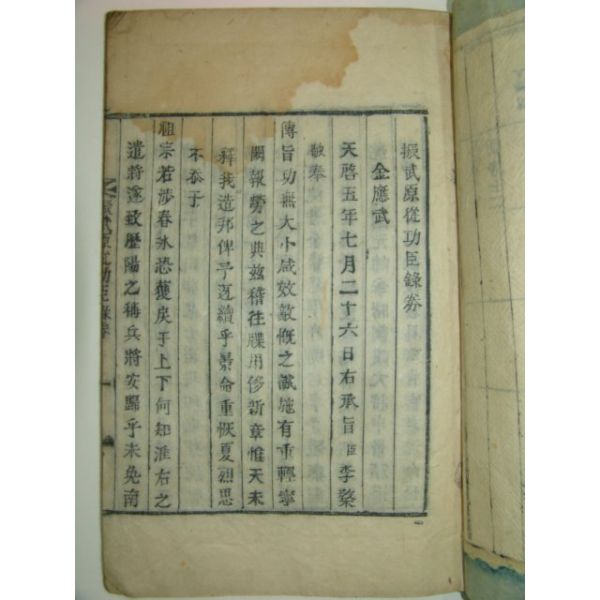 振武原從功臣錄券
金應武
天啓五年七月二十六日右承旨臣李
敬奉
傳旨功無大小咸效敵愾之誠施有重輕寧
闕報勞之典玆稽往牒用侈新章惟天未
釋我造邦俾予迓續乎景命重恢夏烈思
不忝于
祖宗若涉春氷恐獲戾于上下何知淮右之
遣將遂致歷陽之稱兵將安歸乎未免南
振武原從功臣錄券